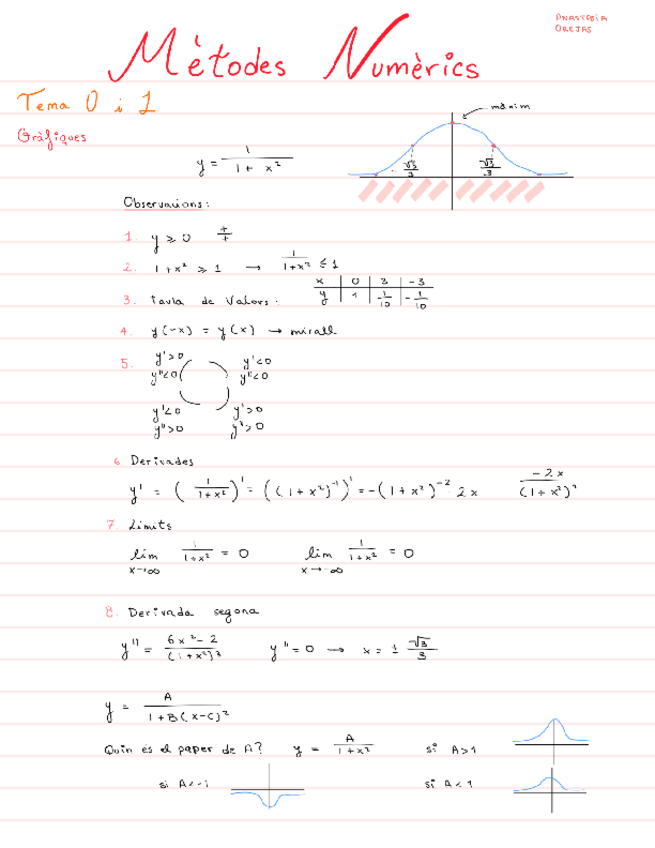 ANASTASIA
OREJAS
Mètodes Numèrics
Tema 0 i 1
Gràfiques
màxim
y = 1 / (1 + x²)
√3/3 √3/3
Observacions:
1. y ≥ 0 +/+
2. 1+x² ≥ 1 → 1/(1+x²) ≤ 1
3. Taula de Valors:
x | 0 | 3 | -3
y | 1 | 1/10 | -1/10
4. y(-x) = y(x) → mirall
5. y'>0 y'<0
y"<0 y"<0
y'<0 y'>0
y">0 y">0
6 Derivades
y' = (1/(1+x²))' = ((1+x²)⁻¹)' = -(1+x²)⁻² · 2x -2x/(1+x²)²
7. Límits
lim x→∞ 1/(1+x²) = 0 lim x→-∞ 1/(1+x²) = 0
8. Derivada segona
y" = (6x²-2)/(1+x²)³ y"=0 → x = ± √3/3
y = A / (1+B(x-C)²)
Quin és el paper de A? y = A/(1+x²) si A>1
si A<-1 si A<1